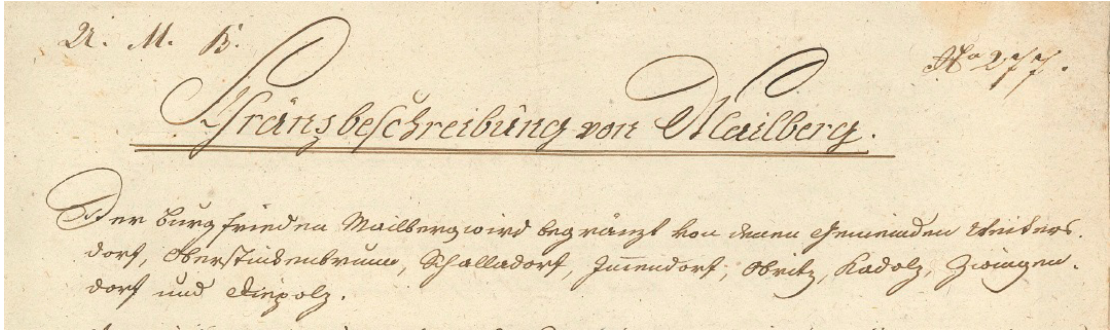 U. M. B.
No 277.
Gränzbeschreibung von Mailberg.
Der Burgfrieden Mailberg wird begränzt von denen Gemeinden Weikers-
dorf, Oberstinkenbrunn, Schalladorf, Immendorf, Obritz, Kadolz, Zwingen-
dorf und Diepolz.